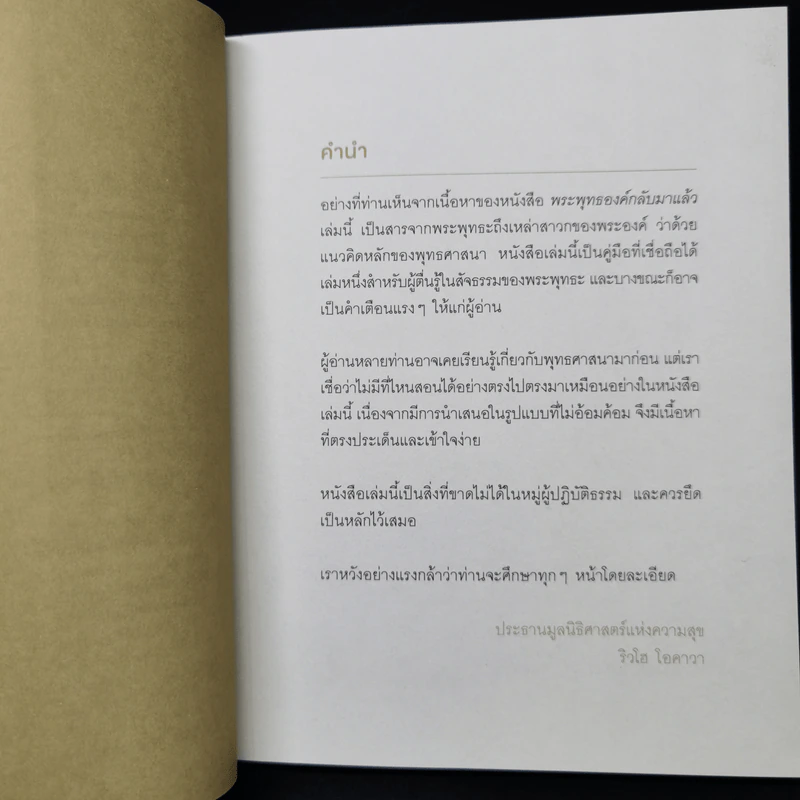 คำนำ
อย่างที่ท่านเห็นจากเนื้อหาของหนังสือ พระพุทธองค์กลับมาแล้ว
เล่มนี้ เป็นสารจากพระพุทธะถึงเหล่าสาวกของพระองค์ ว่าด้วย
แนวคิดหลักของพุทธศาสนา หนังสือเล่มนี้เป็นคู่มือที่เชื่อถือได้
เล่มหนึ่งสำหรับผู้ตื่นรู้ในสัจธรรมของพระพุทธะ และบางขณะก็อาจ
เป็นคำเตือนแรงๆ ให้แก่ผู้อ่าน
ผู้อ่านหลายท่านอาจเคยเรียนรู้เกี่ยวกับพุทธศาสนามาก่อน แต่เรา
เชื่อว่าไม่มีที่ไหนสอนได้อย่างตรงไปตรงมาเหมือนอย่างในหนังสือ
เล่มนี้ เนื่องจากมีการนำเสนอในรูปแบบที่ไม่อ้อมค้อม จึงมีเนื้อหา
ที่ตรงประเด็นและเข้าใจง่าย
หนังสือเล่มนี้เป็นสิ่งที่ขาดไม่ได้ในหมู่ผู้ปฏิบัติธรรม และควรยึด
เป็นหลักไว้เสมอ
เราหวังอย่างแรงกล้าว่าท่านจะศึกษาทุกๆ หน้าโดยละเอียด
ประธานมูลนิธิศาสตร์แห่งความสุข
ริวโฮ โอคาวา